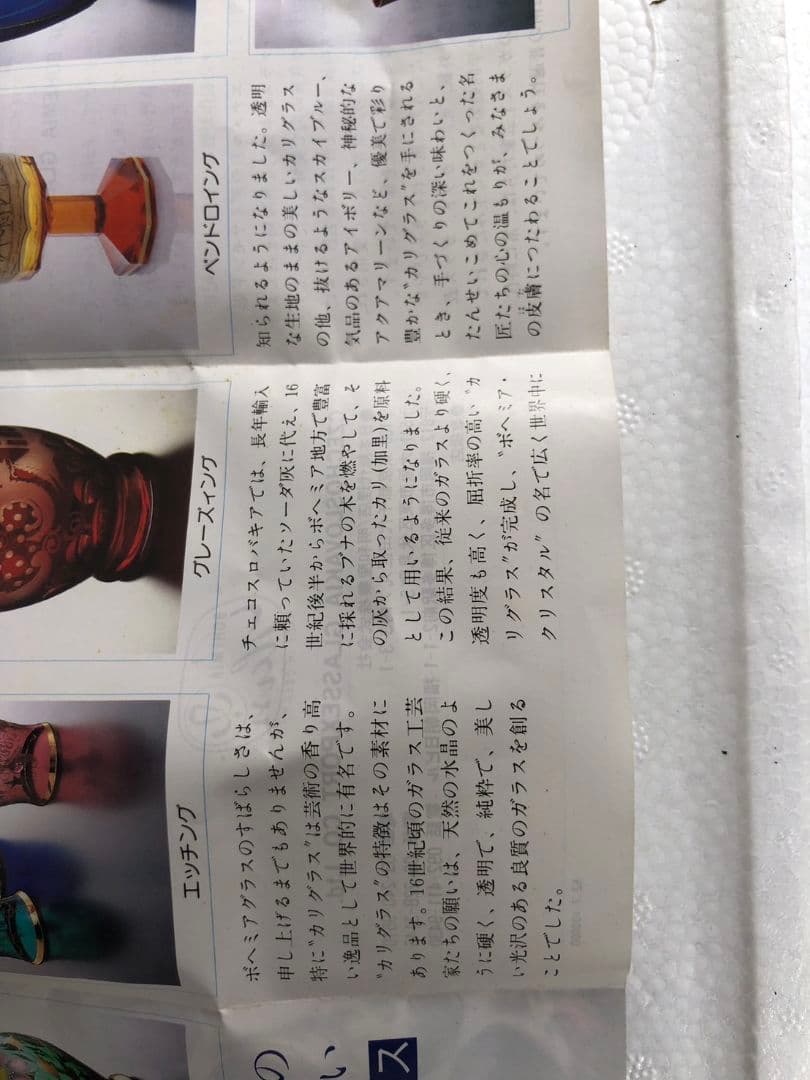 の
い
ス
エッチング
グレーズィング
ペンドロイング
ボヘミアグラスのすばらしさは、
申し上げるまでもありませんが、
特に"カリグラス"は芸術の香り高
い逸品として世界的に有名です。
"カリグラス"の特徴はその素材に
あります。16世紀頃のガラス工芸
家たちの願いは、天然の水晶のよ
うに硬く、透明で、純粋で、美し
い光沢のある良質のガラスを創る
ことでした。
チェコスロバキアでは、長年輸入
に頼っていたソーダ灰に代え、16
世紀後半からボヘミア地方で豊富
に採れるブナの木を燃やして、そ
の灰から取ったカリ(加里)を原料
として用いるようになりました。
この結果、従来のガラスより硬く、
透明度も高く、屈折率の高い"カ
リグラス"が完成し、"ボヘミア・
クリスタル"の名で広く世界中に
知られるようになりました。透明
な生地のままの美しいカリグラス
の他、抜けるようなスカイブルー、
気品のあるアイボリー、神秘的な
アクアマリーンなど、優美で彩り
豊かな"カリグラス"を手にされる
とき、手づくりの深い味わいと、
たんせいこめてこれをつくった名
匠たちの心の温もりが、みなさま
の皮膚につたわることでしょう。